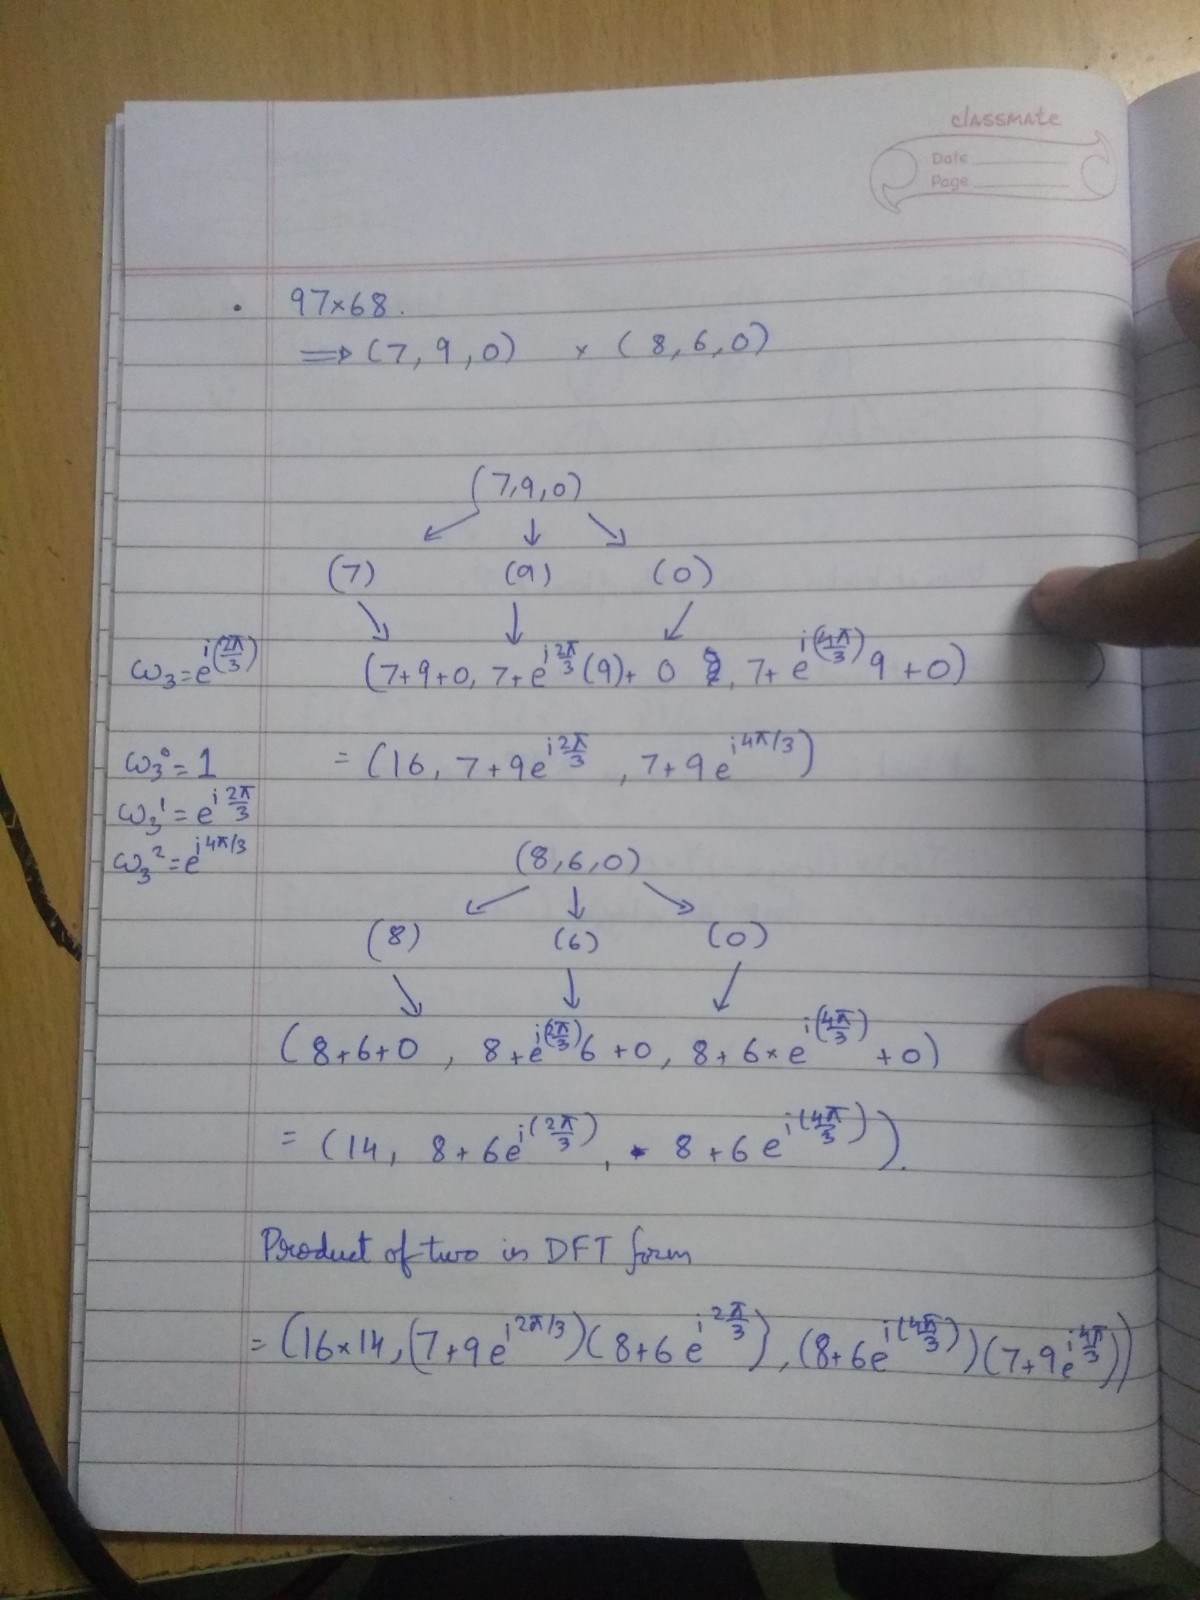 classmate
Date
Page
97×68.
⇒ (7, 9, 0) × (8, 6, 0)
(7,9,0)
(7) (9) (0)
ω₃ = e^{i(2π/3)} (7+9+0, 7+e^{i2π/3}(9)+ 0 , 7+ e^{i(4π/3)}9 +0) )
ω₃⁰ = 1 = (16, 7+9e^{i2π/3}, 7+9e^{i4π/3})
ω₃¹ = e^{i2π/3}
ω₃² = e^{i4π/3} (8,6,0)
(8) (6) (0)
(8+6+0, 8+e^{i(2π/3)}6+0, 8+6×e^{i(4π/3)}+0)
= (14, 8+6e^{i(2π/3)}, 8+6e^{i(4π/3)}).
Product of two in DFT form
= (16×14, (7+9e^{i2π/3})(8+6e^{i2π/3}), (8+6e^{i(4π/3)})(7+9e^{i4π/3}))